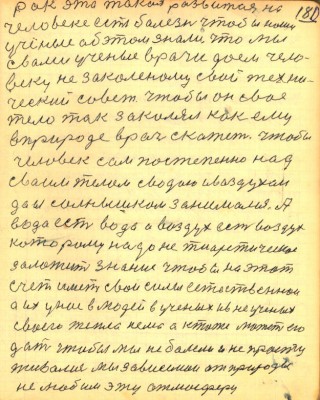 рак эта такая развитая на
180
человеке есть балезн чтобы наши
учёные об этом знали что мы
с вами ученые врачи даем чело-
веку не закаленому свой техни-
ческий совет. чтобы он свое
тело так закалял как ему
в природе врач скажет. чтобы
человек сам постепенно над
своим телом с водою и воздухом
да и солнышком занимался. А
вода есть вода а воздух есть воздух
которому надо не тиоретическое
заложит знание чтобы на этот
счет имет свои силы естественной
а их у нас в людей в ученых и в не ученых
своего тепла нема а кто их может его
дат чтобы мы не балели и не просту
живалися мы зависимои от природы
не любим эту атмосферу